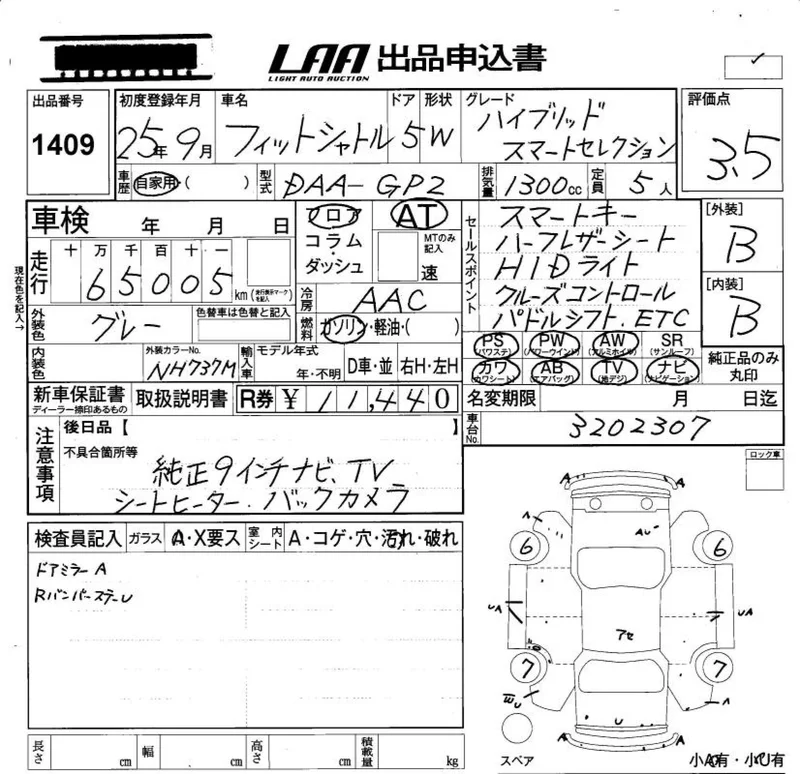 LAA 出品申込書
LIGHT AUTO AUCTION
出品番号 初度登録年月 車名 ドア 形状 グレード 評価点
1409 25年9月 フィットシャトル 5 W ハイブリッド スマートセレクション 3.5
車歴 自家用・( ) 型式 DAA-GP2 排気量 1300cc 定員 5人
車検 年 月 日 フロア AT
コラム・ダッシュ MTのみ記入 速
現在色を記入→
走行 十 万 千 百 十 一
65005 km (走行表示マークを記入)
冷房 AAC
外装色 グレー 色替車は色替と記入 燃料 ガソリン・軽油・( )
内装色 外装カラーNo. NH737M 輸入車 モデル年式 年・不明 D車・並 右H・左H
セールスポイント
スマートキー
ハーフレザーシート
HIDライト
クルーズコントロール
パドルシフト.ETC
[外装] B
[内装] B
PS(パワステ) PW(パワーウインド) AW(アルミホイル) SR(サンルーフ)
カワ(カワシート) AB(エアバッグ) TV(地デジ) ナビ(ナビゲーション)
純正品のみ丸印
新車保証書 ディーラー捺印あるもの 取扱説明書 R券 ¥ 11,440 名変期限 月 日迄
車台No. 3202307
注意事項 後日品【 】
不具合箇所等
純正9インチナビ、TV
シートヒーター、バックカメラ
ロック車
検査員記入 ガラス A・X要ス 室内シート A・コゲ・穴・汚れ・破れ
ドアミラー A
RバンパーステーU
A A
A AU
6 6
UA UA
アセ
7 7
WU A
U
A A
スペア 小A有・小U有
長さ cm 幅 cm 高さ cm 積載量 kg